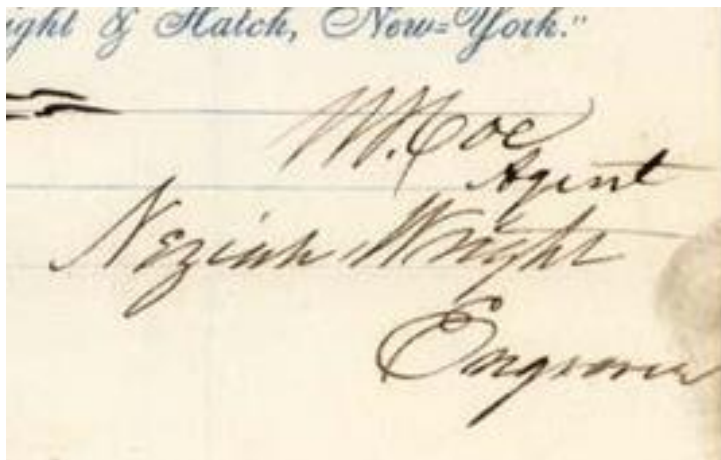 ight & Hatch, New=York."
W. Coe
Agent
Neziah Wright
Engraver